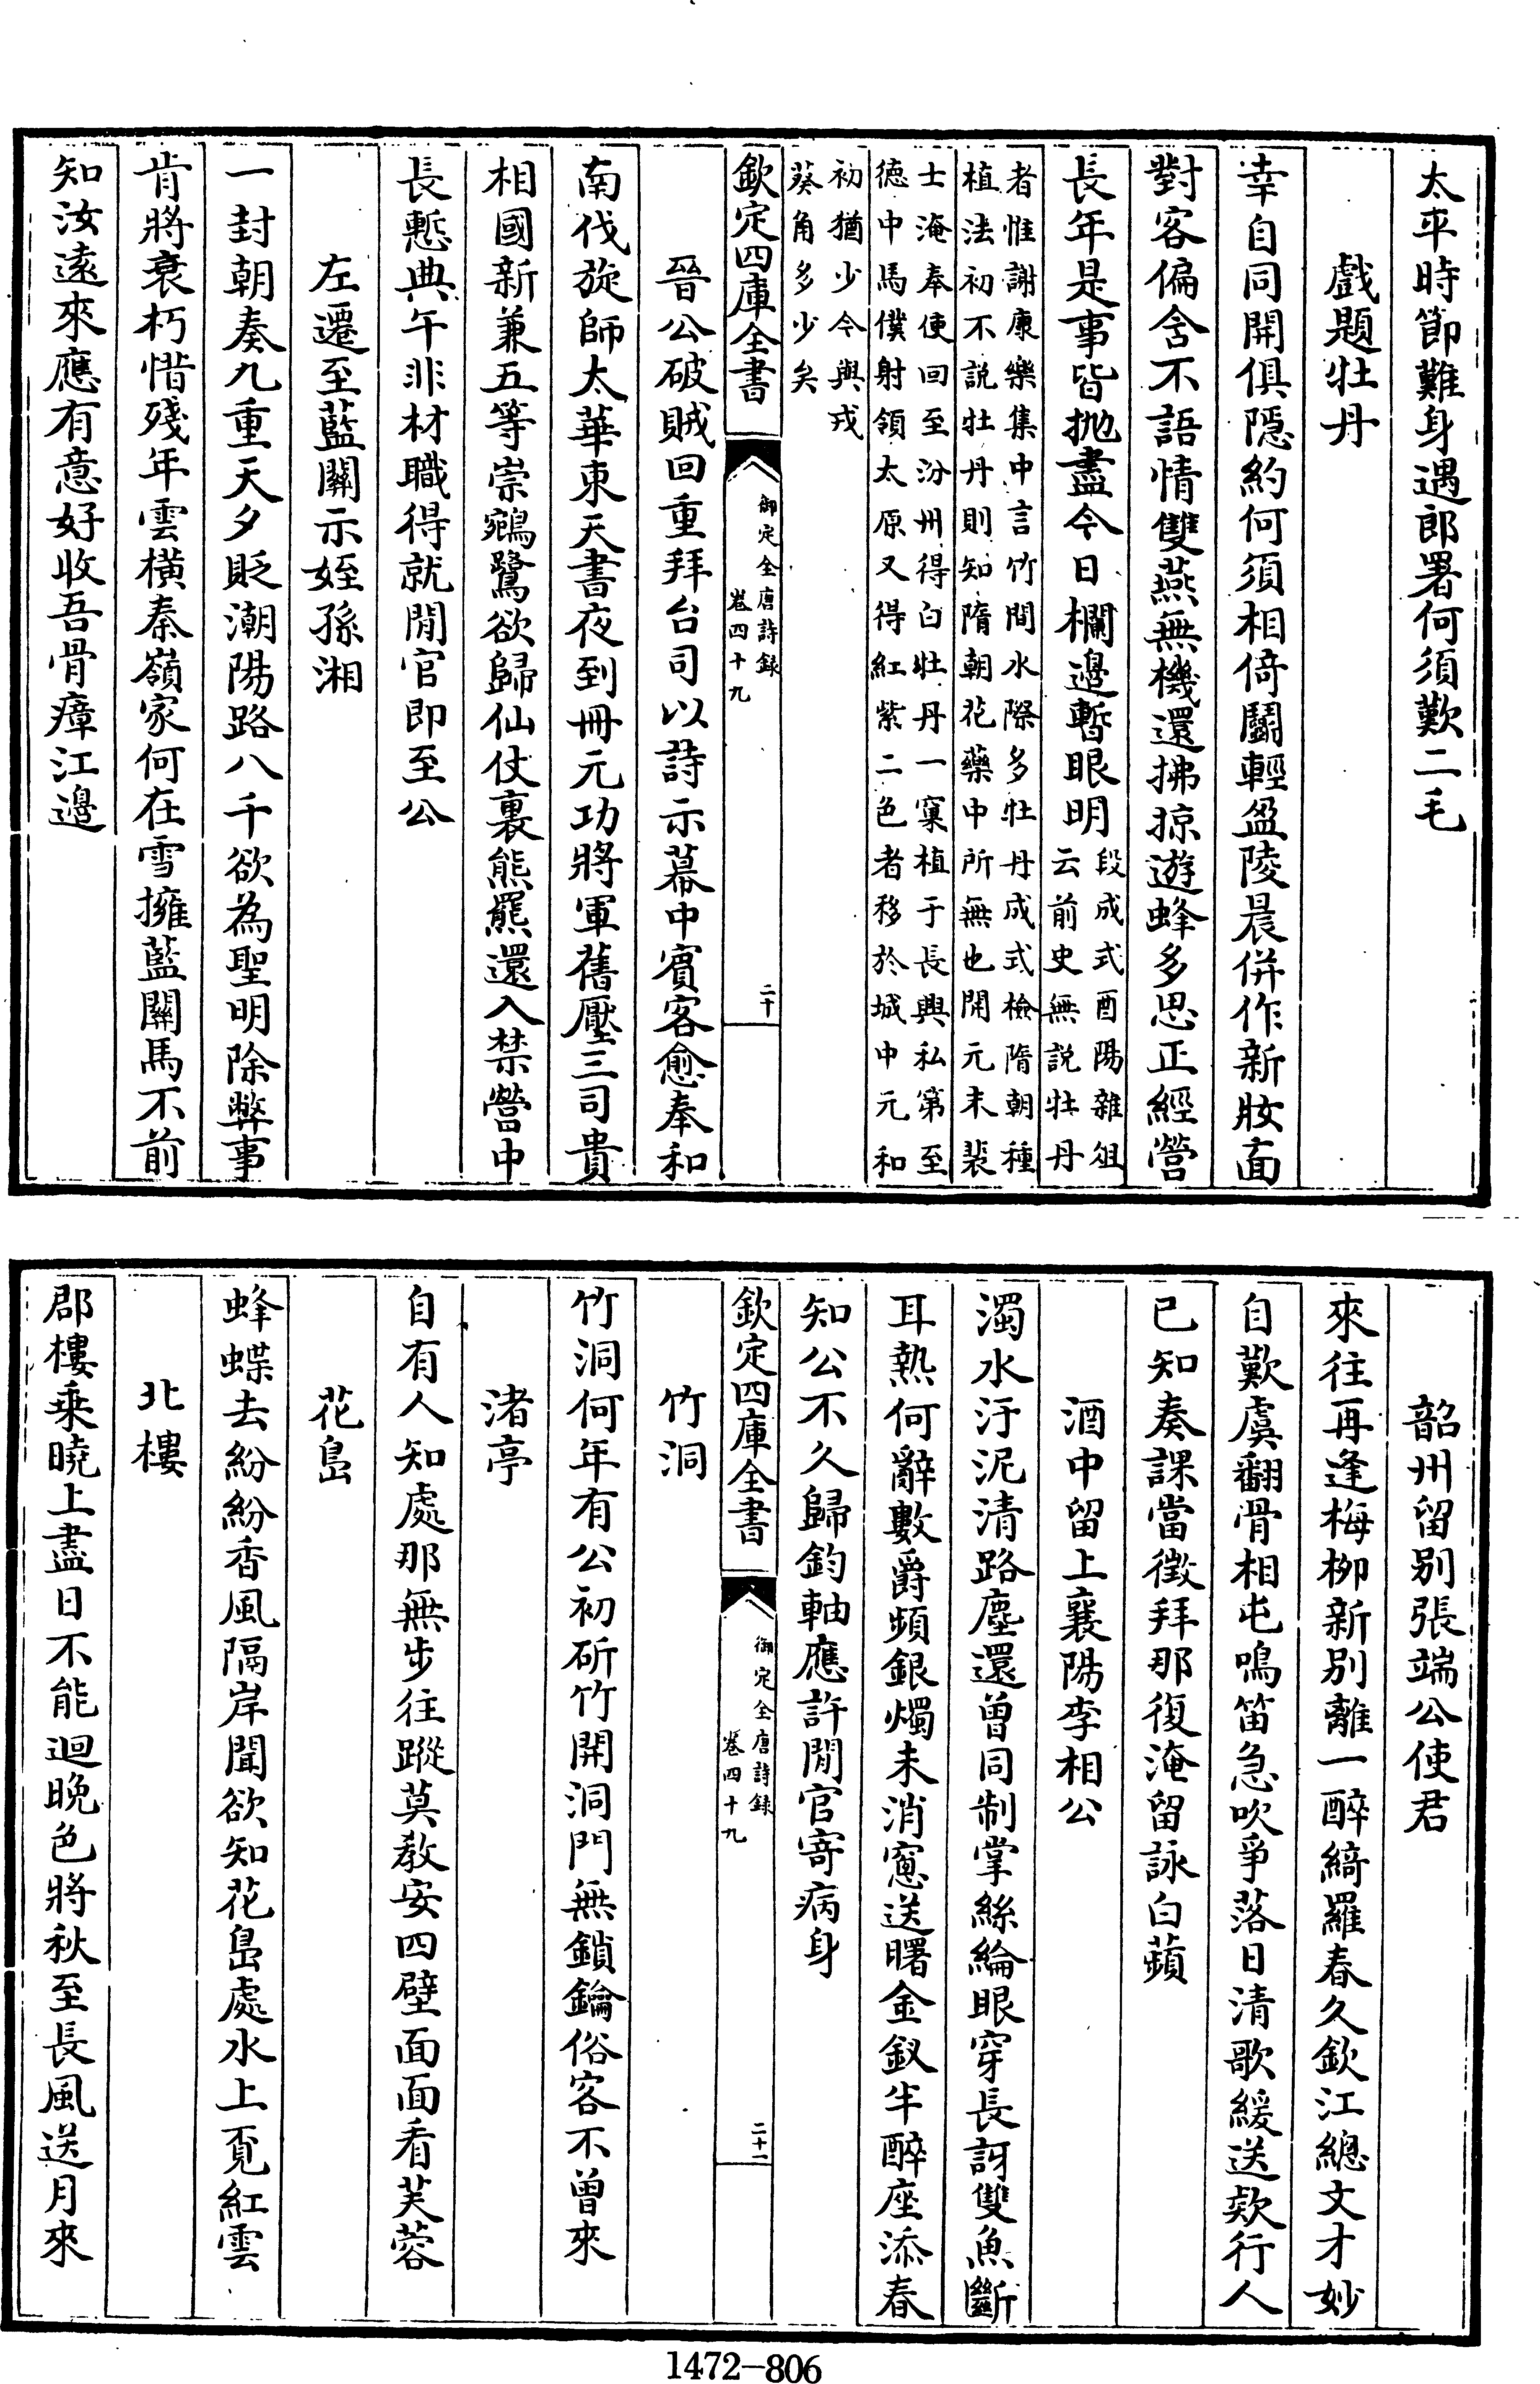 太平時節難身遇郎署何須歎二毛
戲題牡丹
幸自同開俱隱約何須相倚鬬輕盈陵晨併作新妝面
對客偏含不語情雙燕無機還拂掠遊蜂多思正經營
長年是事皆抛盡今日欄邊暫眼明
段成式酉陽雜俎
云前史無説牡丹
者惟謝康樂集中言竹間水際多牡丹成式檢隋朝種
植法初不説牡丹則知隋朝花藥中所無也開元末裴
士淹奉使回至汾州得白牡丹一窠植于長興私第至
德中馬僕射領太原又得紅紫二色者移於城中元和
初猶少今與戎
葵角多少矣
欽定四庫全書
御定全唐詩録
卷四十九
二十
晉公破賊回重拜台司以詩示幕中賓客愈奉和
南伐旋師太華東天書夜到冊元功將軍舊壓三司貴
相國新兼五等崇鵷鷺欲歸仙仗裏熊羆還入禁營中
長慙典午非材職得就閒官即至公
左遷至藍關示姪孫湘
一封朝奏九重天夕貶潮陽路八千欲為聖明除弊事
肯將衰朽惜殘年雲橫秦嶺家何在雪擁藍關馬不前
知汝遠來應有意好收吾骨瘴江邊
韶州留别張端公使君
來往再逢梅柳新别離一醉綺羅春久欽江總文才妙
自歎虞翻骨相屯鳴笛急吹爭落日清歌緩送欵行人
已知奏課當徴拜那復淹留詠白蘋
酒中留上襄陽李相公
濁水汙泥清路塵還曾同制掌絲綸眼穿長訝雙魚斷
耳熱何辭數爵頻銀燭未消窻送曙金釵半醉座添春
知公不久歸鈞軸應許閒官寄病身
欽定四庫全書
御定全唐詩録
卷四十九
二十一
竹洞
竹洞何年有公初斫竹開洞門無鎖鑰俗客不曾來
渚亭
自有人知處那無步往蹤莫教安四壁面面看芙蓉
花島
蜂蝶去紛紛香風隔岸聞欲知花島處水上覓紅雲
北樓
郡樓乗曉上盡日不能迴晚色將秋至長風送月來
1472-806